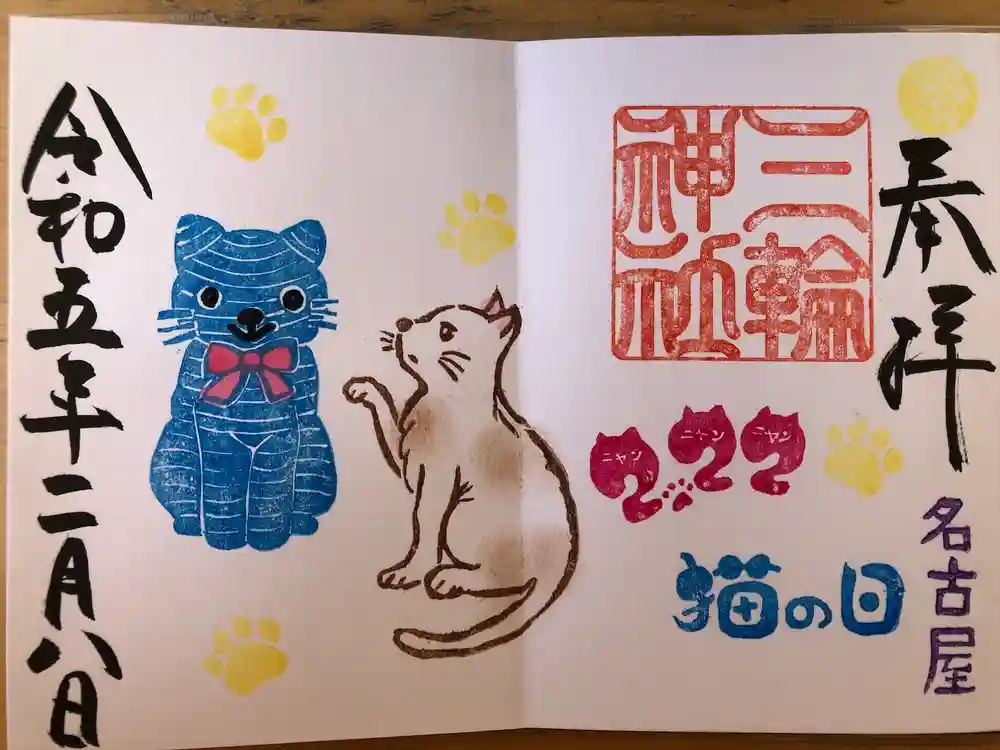 奉拝
三輪
神社
ニャン ニャン ニャン
2.22
猫の日
名古屋
令和五年二月八日